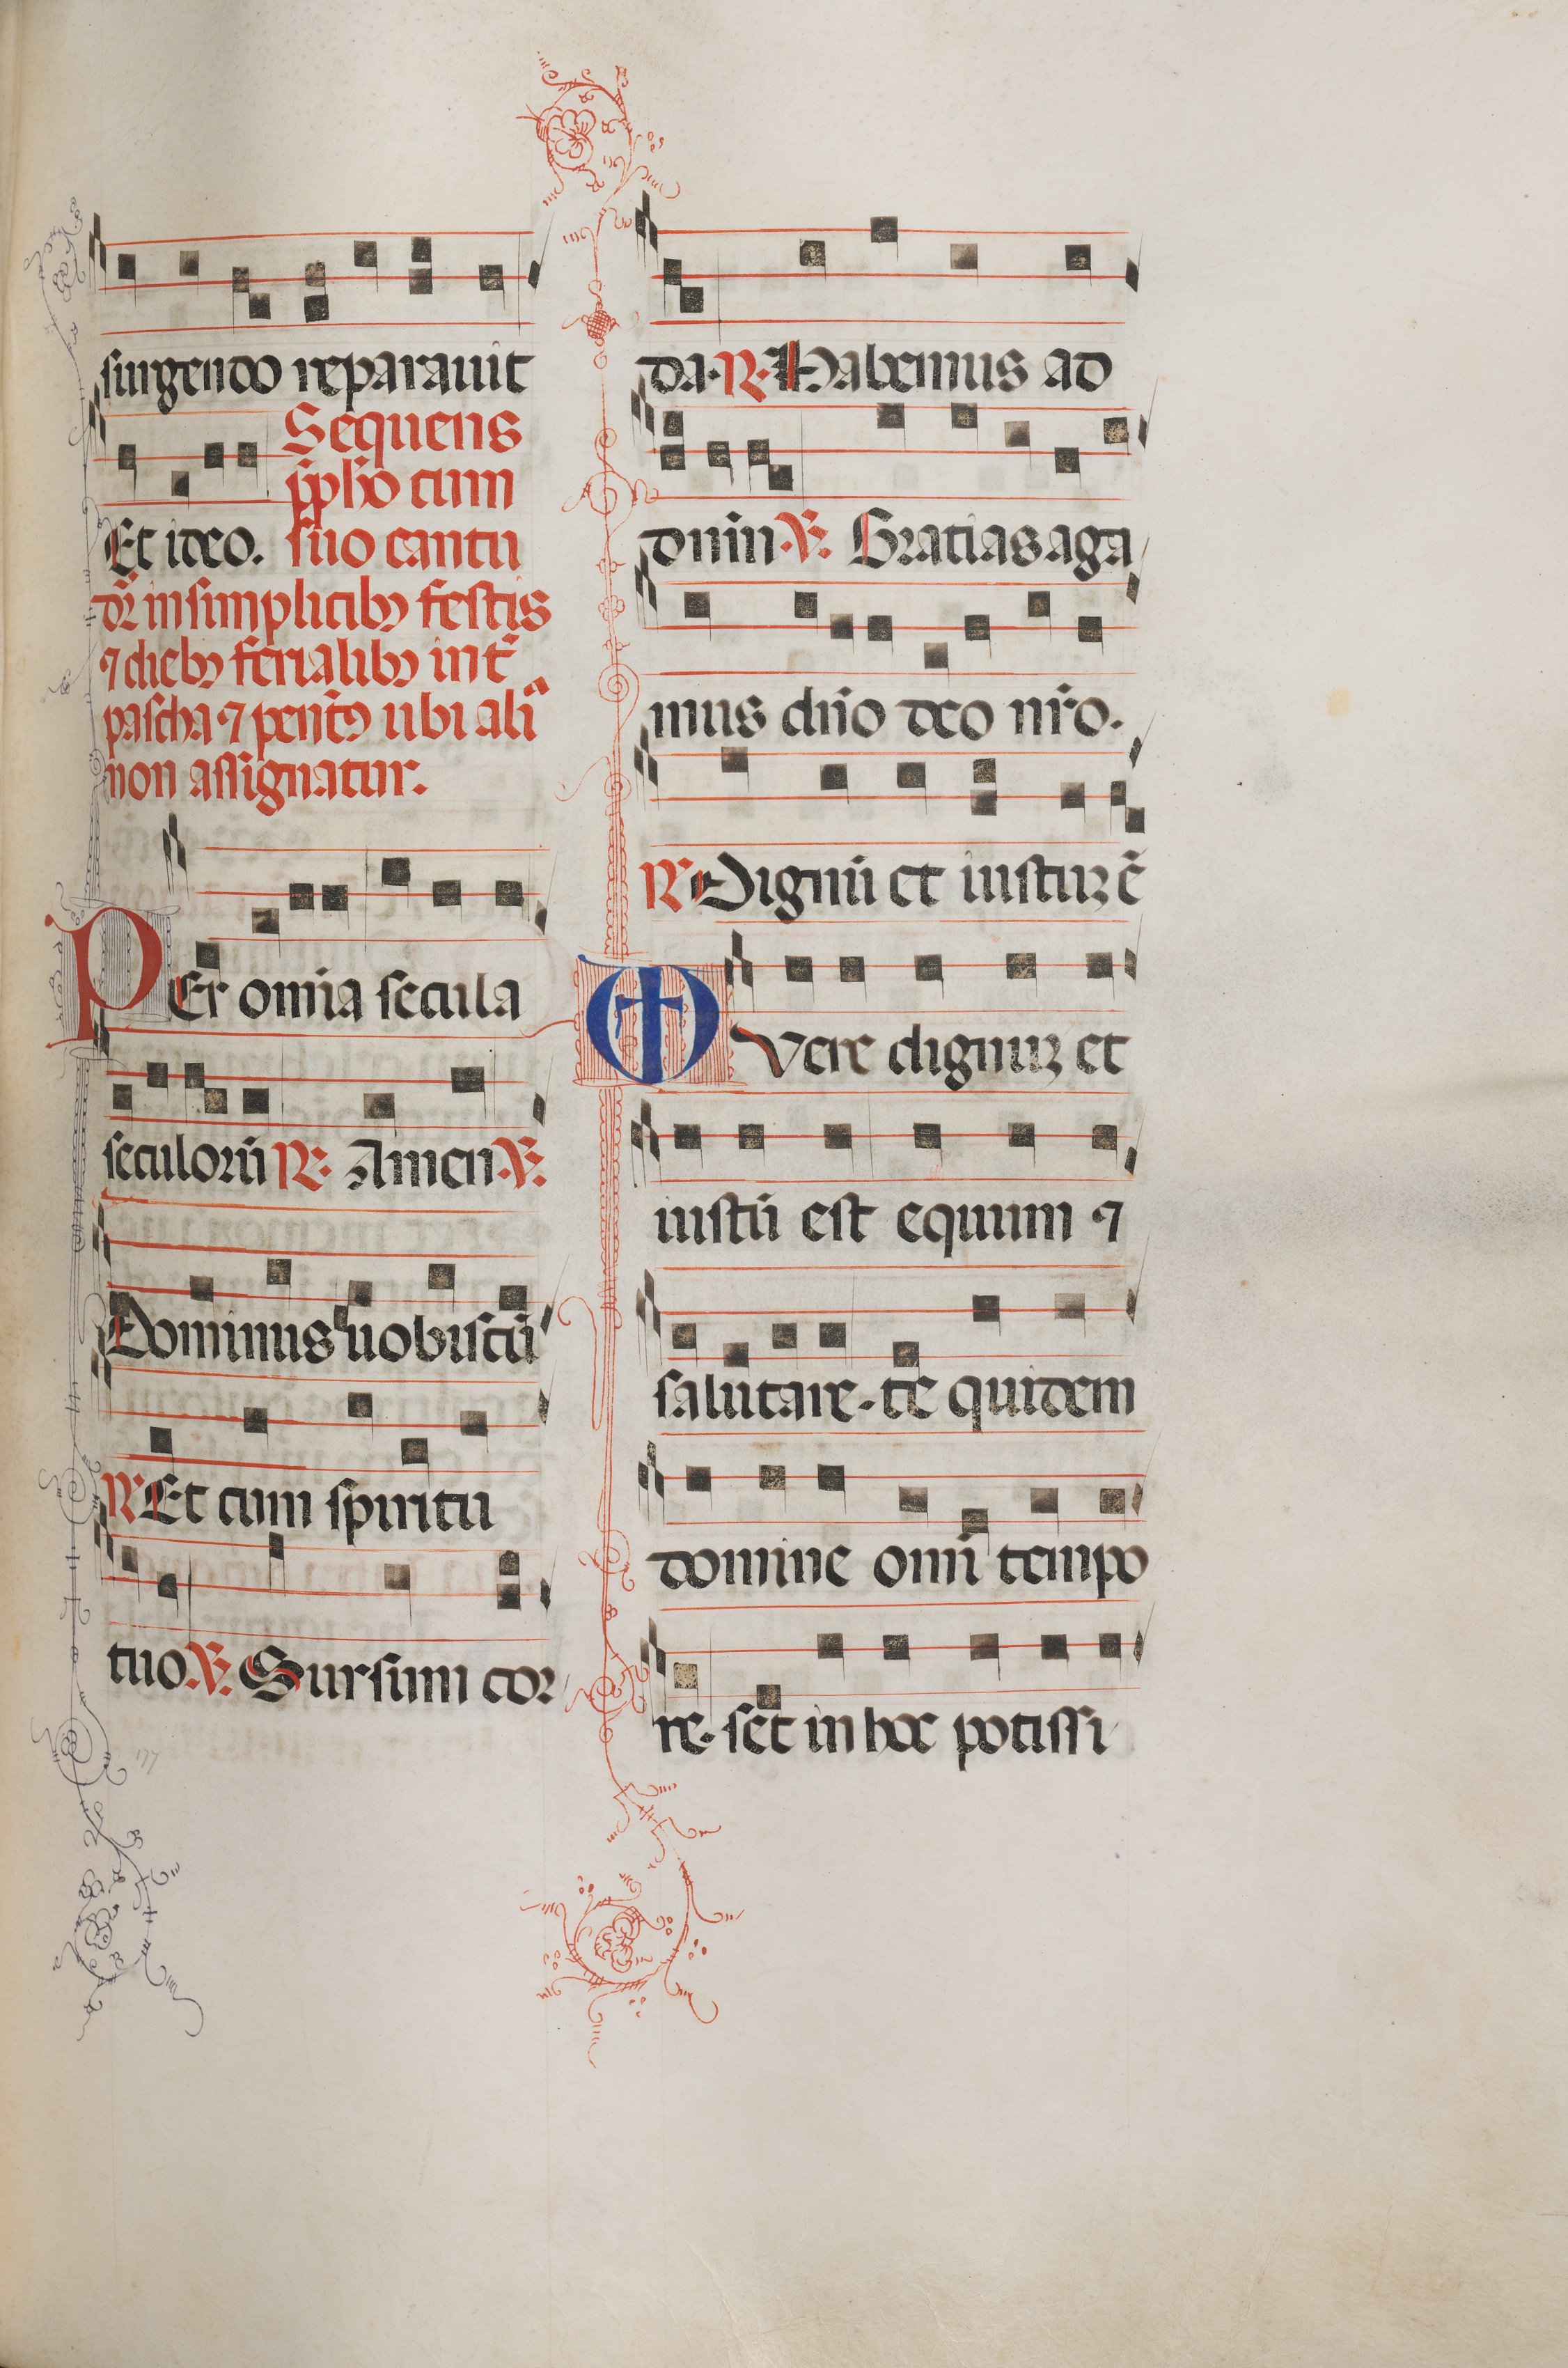 surgendo reparauit
Sequens
p̄phō cum
Et ideo. suo cantu
dr̄ in simplicibꝫ festis
⁊ diebꝫ ferialibꝫ int̄
pascha ⁊ pent̄ ubi ali
non assignatur.
PEr om̄ia secula
seculorū ℟. Amen ℣.
Dominus uobiscū
℟ Et cum spiritu
tuo ℣. Sursum cor
da. ℟. Habemus ad
dnm̄ ℣. Gratias aga
mus dn̄o deo nr̄o.
℟ Dignū et iustuꝫ ē
Vere dignuꝫ et
iustū est equum ⁊
salutare. te quidem
domine omī tempo
re. set in hoc potissi
177